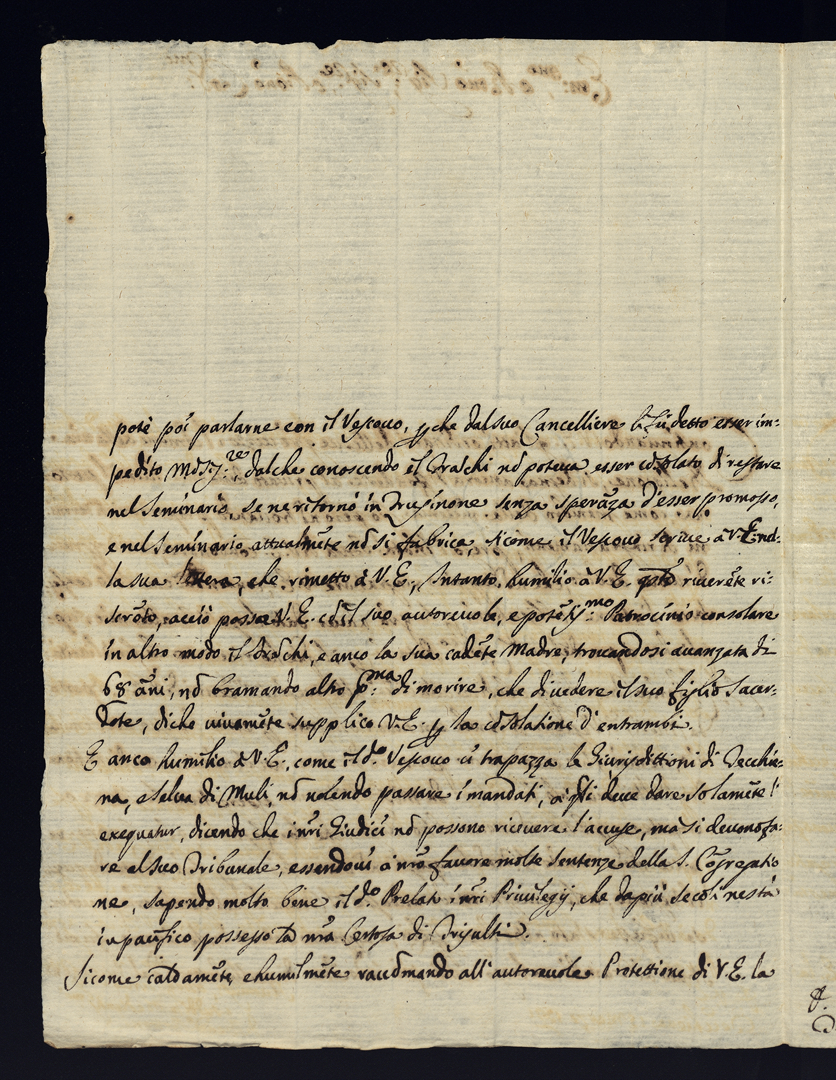 potè poi parlarne con il Vescovo, p che dal suo Cancelliere li fù detto esser im=
pedito Monsig.re, dal che conoscendo il Braschi nō poteva esser cōsolato di restare
nel Seminario se ne ritornò in Frusinone senza sperāza d'esser promosso,
e nel Seminario attualmēte nō si fabrica, sicome il Vescovo scrive à V.E. nel=
la sua lettera, che rimetto à V.E., Intanto humilio à V.E. qsto riverēte ri=
scrōto, acciò possa V.E. cō il suo autorevole, e potētiss.mo Patrocinio consolare
in altro modo il Braschi, e anco la sua cadēte Madre, trovandosi avanzata di
68 āni, nō bramando altro p.ma di morire, che di vedere il suo figlio Sacer=
dote, di che vivamēte supplico V.E. p la cōsolatione d'entrambi.
E anco humilio à V.E. come il d.o Vescovo ci strapazza le Giurisdittioni di Tecchie=
na, e Selva di Muli, nō volendo passare i mandati, à qli deve dare solamēte l'
exequatur, dicendo che i nri Giudici nō possono ricevere l'accuse, mà si devono fa=
re al suo Tribunale, essendovi à nro favore molte sentenze della S. Cōgregatio
ne, sapendo molto bene il d.o Prelato i nri Privilegij, che da più secoli ne stà
in pacifico possesso la nra Certosa di Trisulti.
Sicome caldamēte, e humilmēte raccōmando all'autorevole Protettione di V.E. la